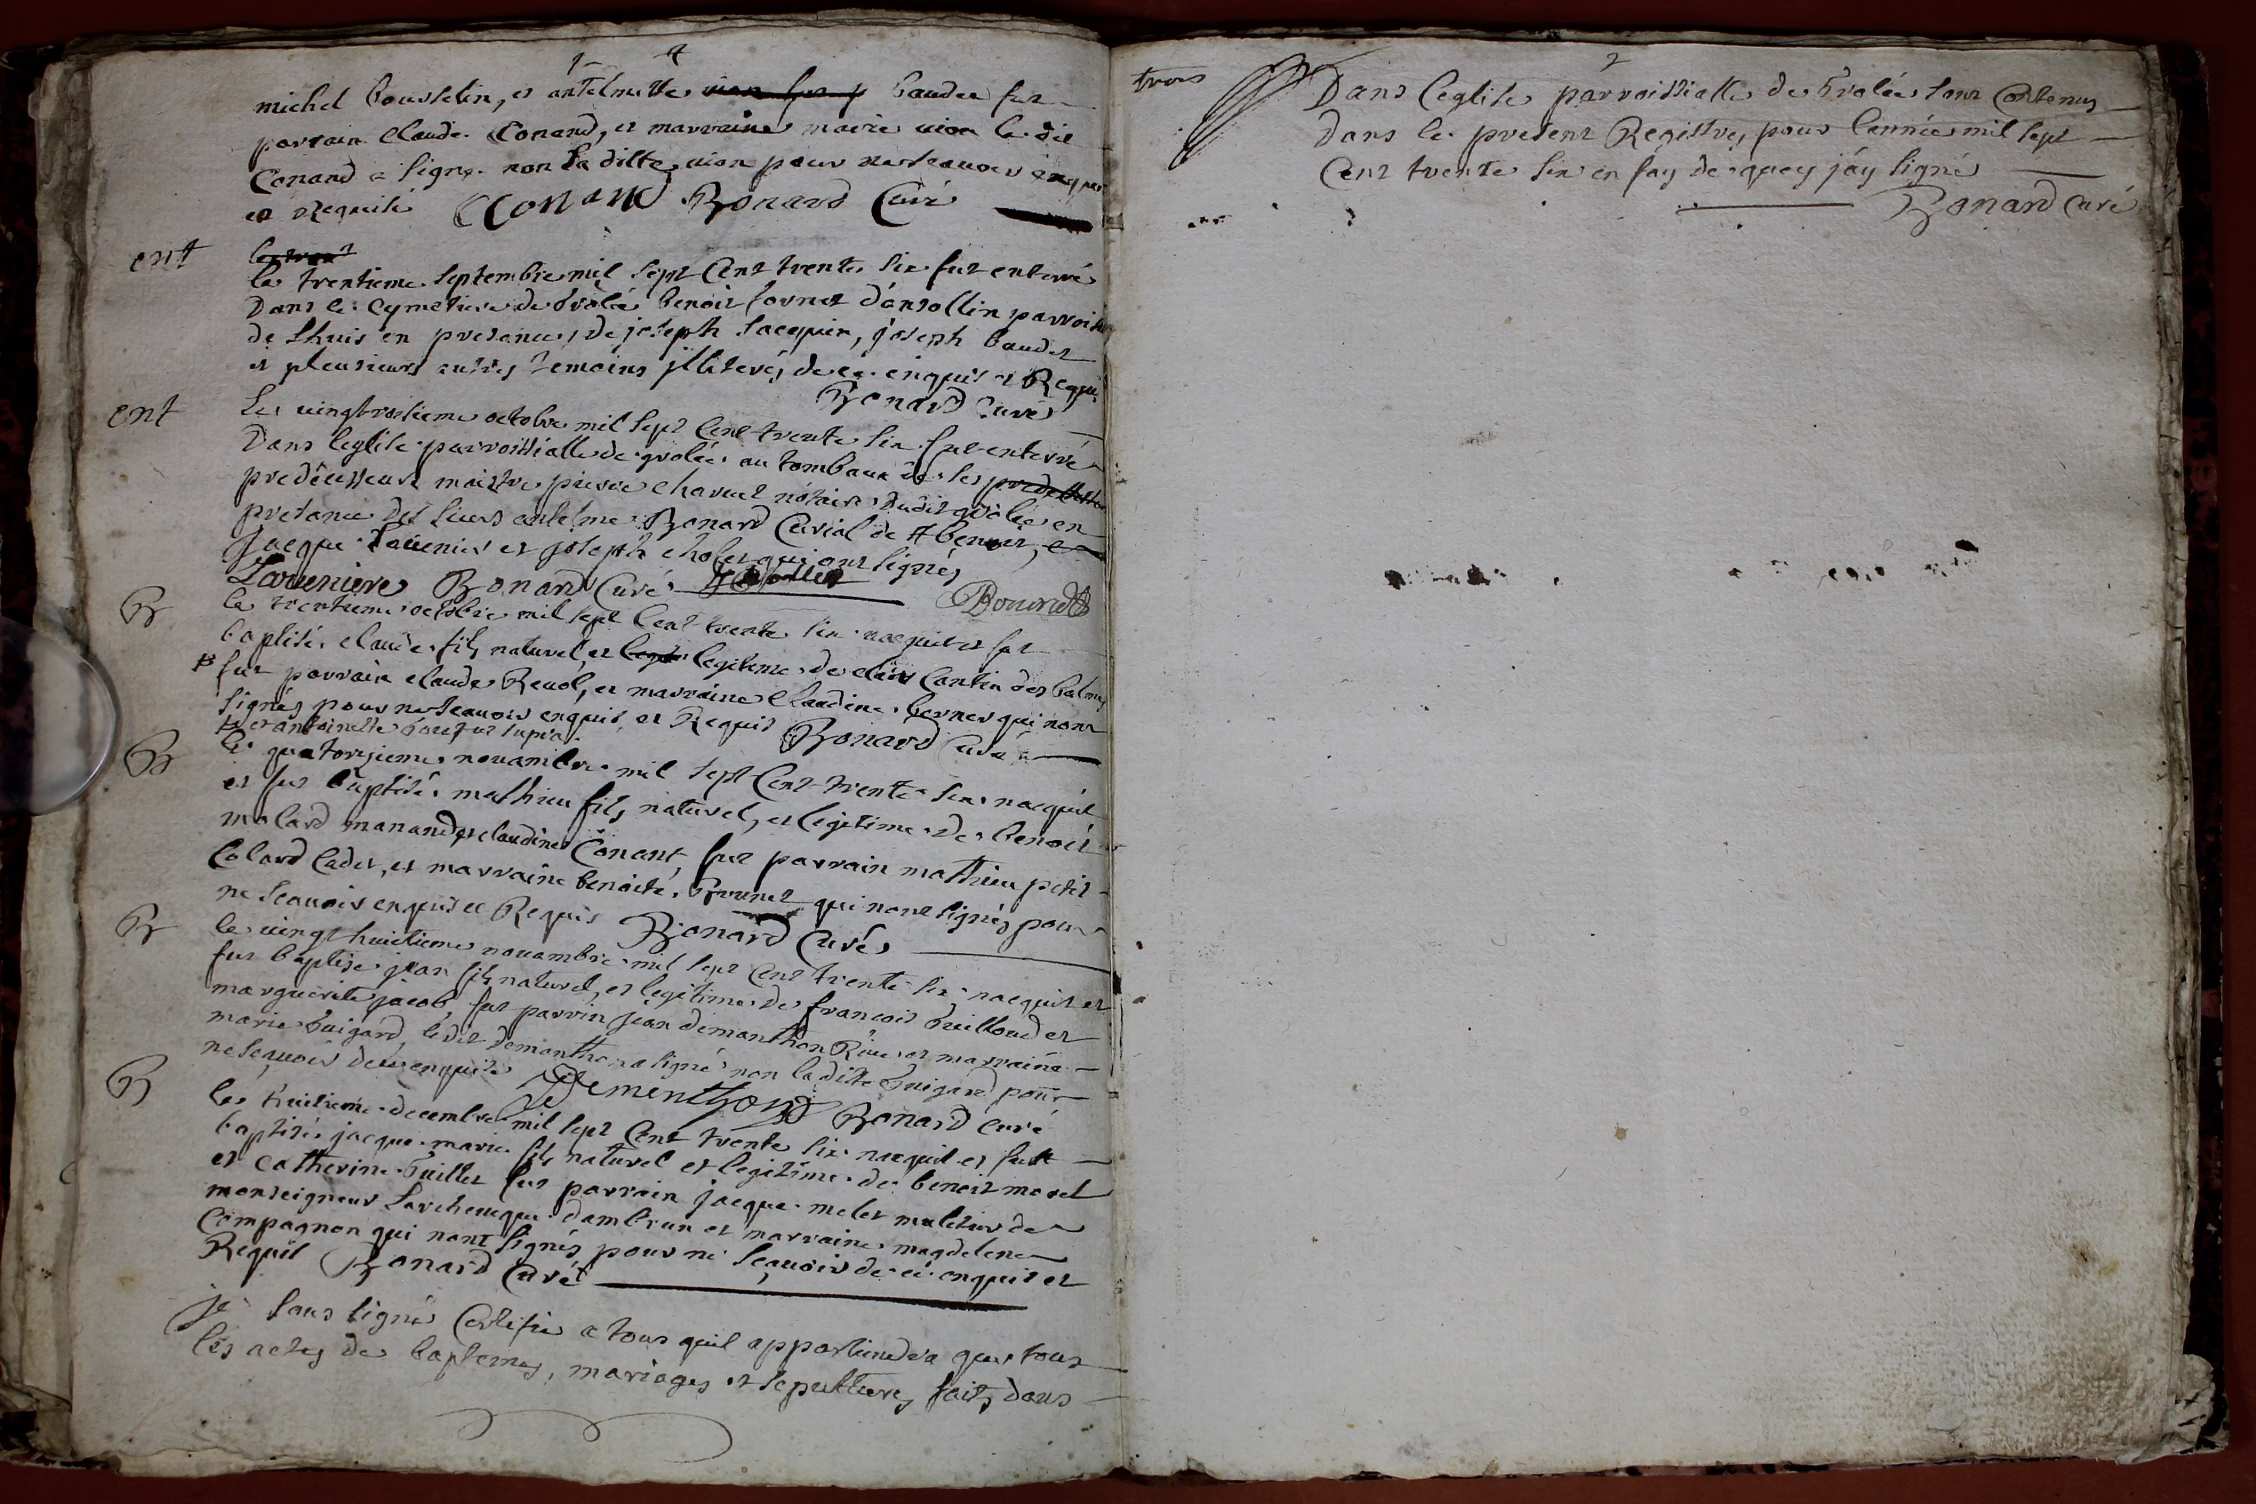 michel bousselin, et antelmette vion fus f baudet fut
parrain claude Conand, et marraine marie vion le dit
Conand a signe non la ditte vion pour ne scavoir enquis
et Requise CConand Bonard Curé
ent
le trent
le trentieme septembre mil sept Cent trente six fut enterré
Dans le cymetiere de Grolée benoit fornet d'ansollin parroisse
de Lhuis en presance, de joseph Jacquier, joseph baudet
et pleusieurs autres temoins jlliterés de ce enquis et Requis
Bonard Curé
ent
Le vingtroisieme octobre mil sept Cent trente six fut enterré
Dans leglise parroissialle de grolée au tombaux de ses
predecesseurs maistre pierre charvet notaire dudit grolée en
presance des sieurs antelme Bonard Curial de st benoit, e
Jacque Tavernier et joseph cholet qui ont signés
Bonard Curé
B
le trentieme octobre mil sept Cent trente six nacquit et fut
baptisé claude fils naturel et legitime de clair Cantin des balmes
fut parrain claude Revol, et marraine claudine bernet qui nont
signés pour ne scavoir enquis et Requis Bonard Curé
et antoinette ut supra
B
le quatorzieme novambre mil sept Cent trente six nacquit
et fut baptisé mathieu fils naturel, et legitime de benoit
molard manand et claudine Conant, fut parrain mathieu petit
Colard Cadet, et marraine benoite Brunet qui nont signés pour
ne scavoir enquis et Requis Bonard Curé
B
le vingt huitieme novambre mil sept Cent trente six nacquit et
fut baptise jean fils naturel, et legitime de francois Guilloud et
marguerite jacob, fut parrin jean demanthon et marraine
marie Guigard, ledit demanthon a signé non la dite Guigard pour
ne scavoir de ce enquise Dementhon Bonard curé
B
le huitieme decembre mil sept Cent trente six nacquit et fut
baptisé jacque marie fils naturel et legitime de benoit morel
et catherine Guillet fut parrain jacque melet muletier de
monseigneur Larcheveque dambrun et marraine magdelene
Compagnon qui nont signés pour ne scavoir de ce enquis et
Requis Bonard Curé
je sous signé Certifie a tous quil appartiendra que tous
les actes de baptemes, mariages et sepultures faits dans
trois
2
Dans leglise parroissialle de Grolée sont Contenus
Dans le present Registre, pour lannée mil sept
Cent trente six en foy de quoy j'ay signé
Bonard Curé